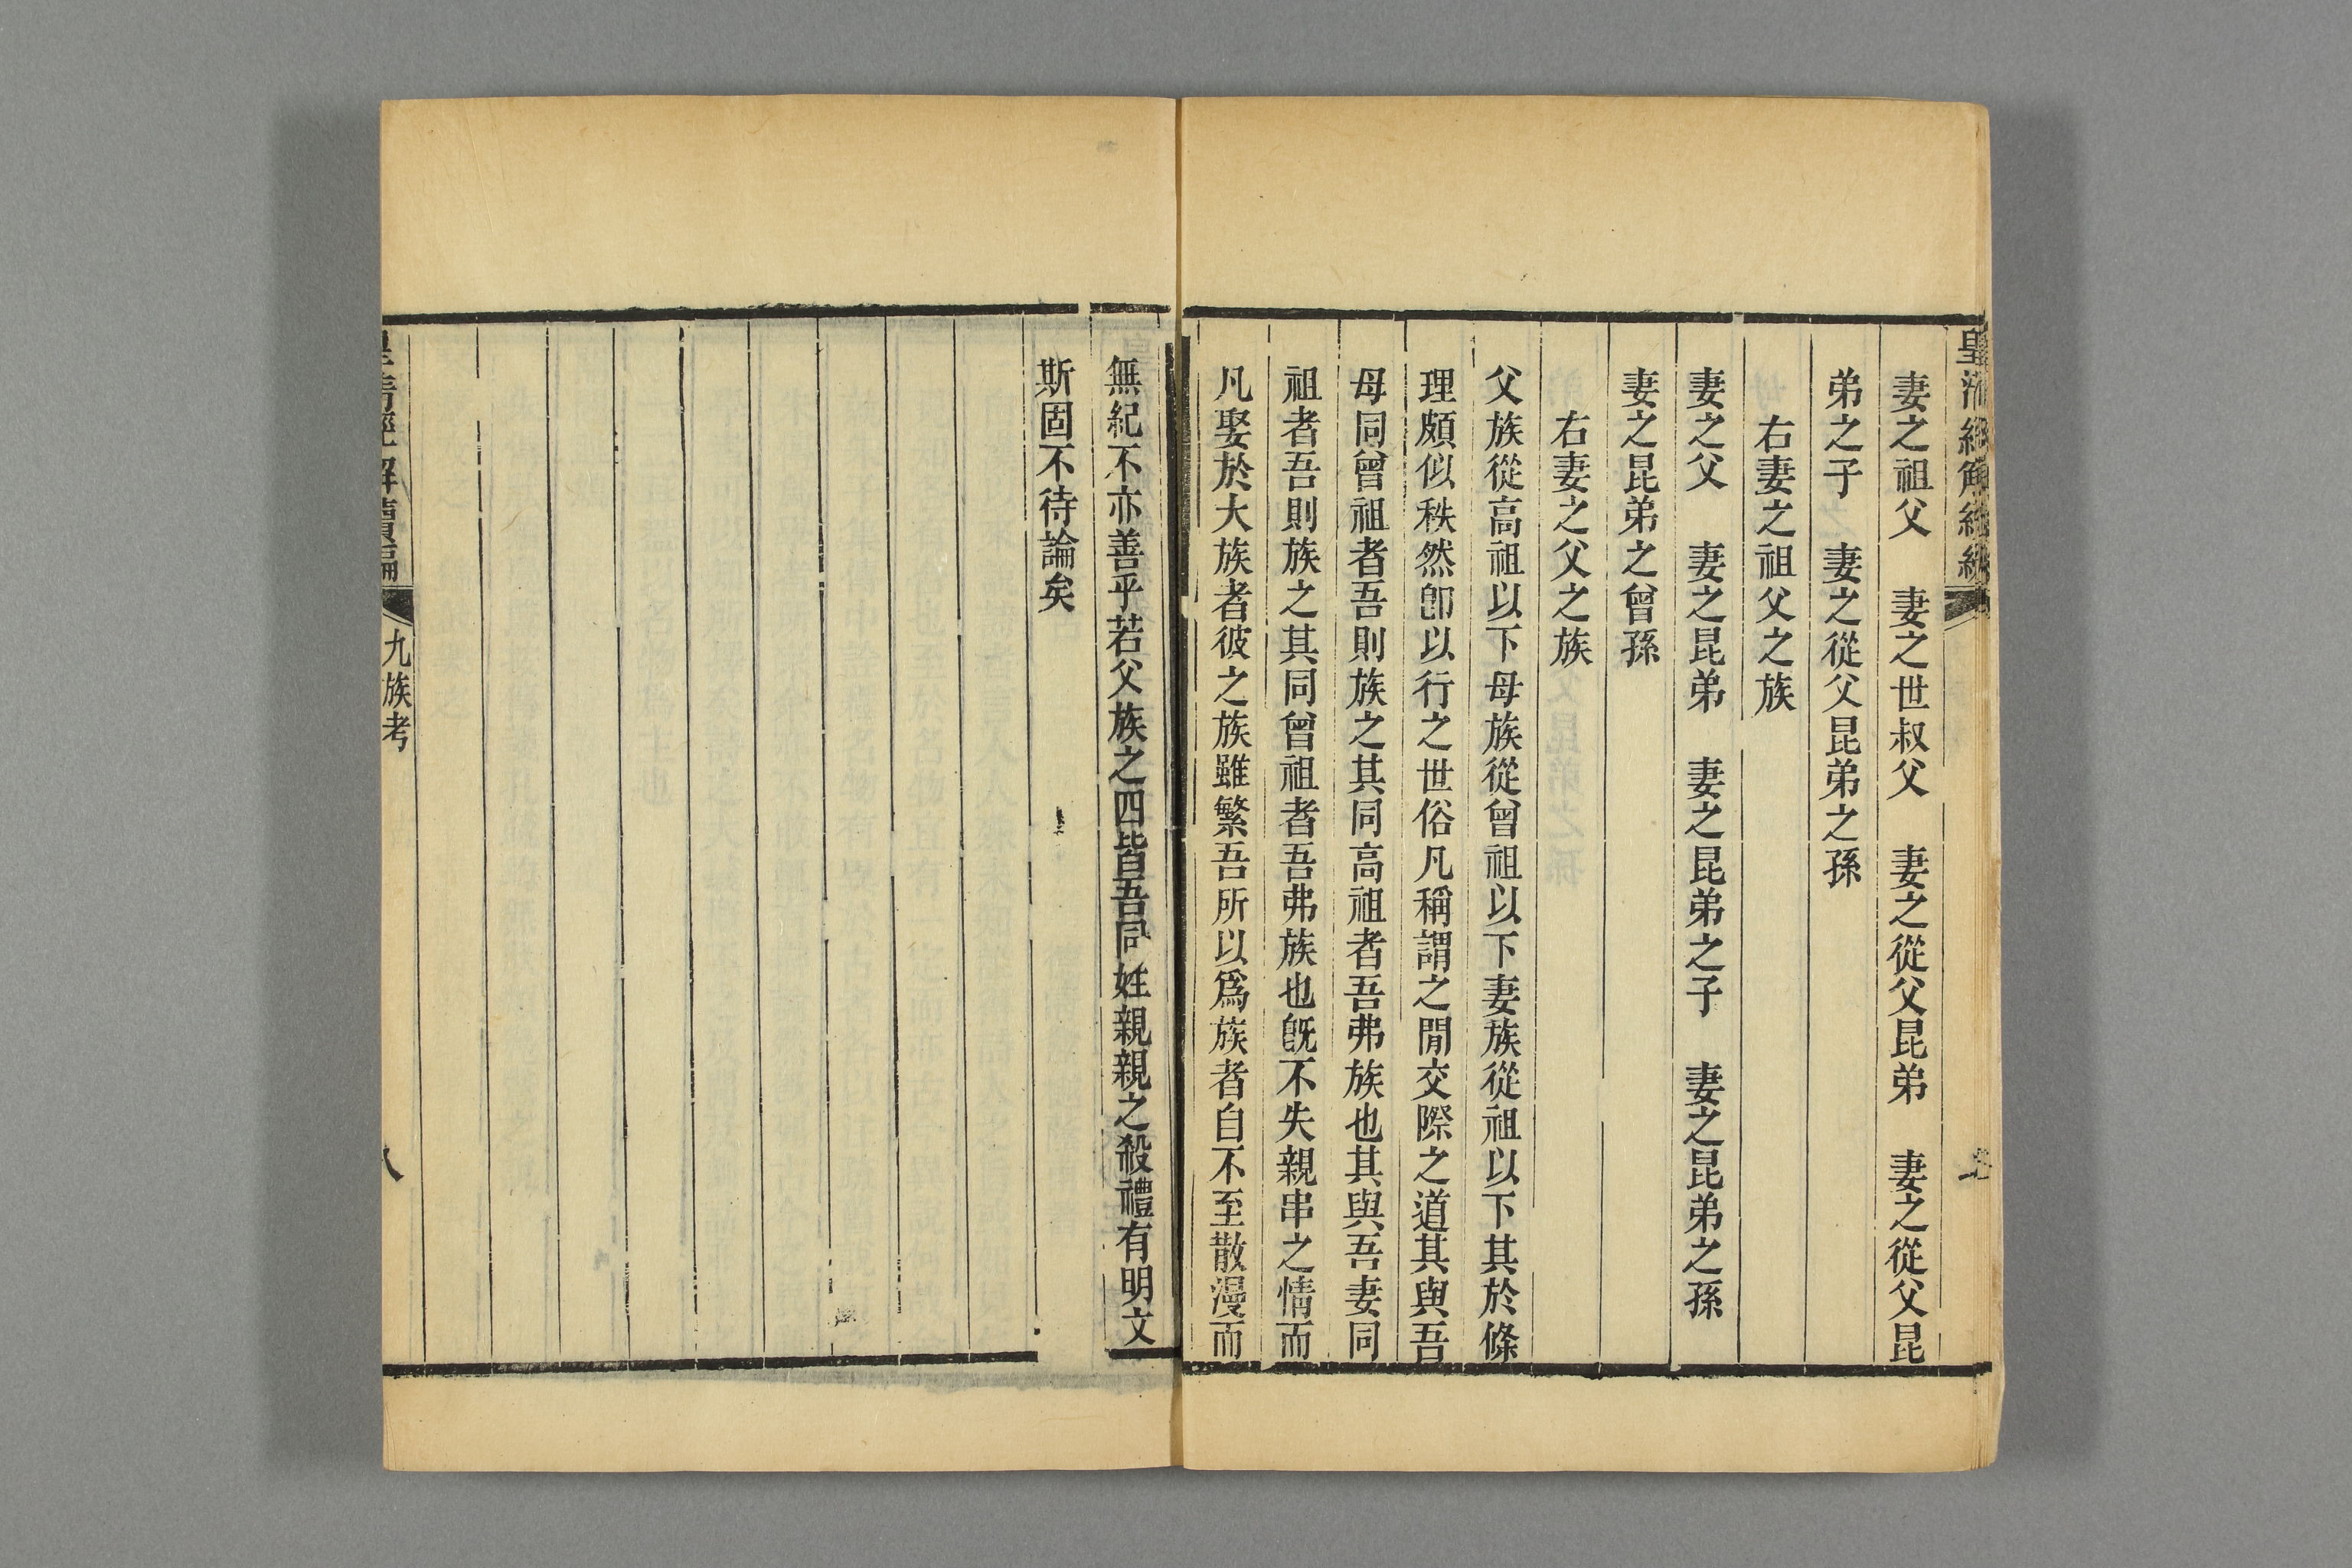 妻之祖父　妻之世叔父　妻之從父昆弟　妻之從父昆
弟之子　妻之從父昆弟之孫
右妻之祖父之族
妻之父　妻之昆弟　妻之昆弟之子　妻之昆弟之孫
妻之昆弟之曾孫
右妻之父之族
父族從高祖以下母族從曾祖以下妻族從祖以下其於條
理頗似秩然卽以行之世俗凡稱謂之閒交際之道其與吾
母同曾祖者吾則族之其同高祖者吾弗族也其與吾妻同
祖者吾則族之其同曾祖者吾弗族也旣不失親串之情而
凡娶於大族者彼之族雖繁吾所以爲族者自不至散漫而
無紀不亦善乎若父族之四皆吾同姓親親之殺禮有明文
斯固不待論矣
皇清經解續編
九族考
八